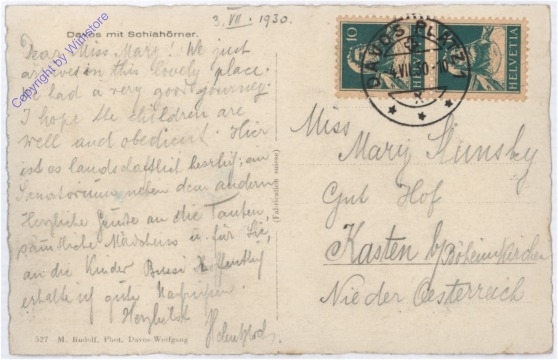 3. VII. 1930.
Davos mit Schiahörner.
Dear Miss Mary! We just
arrived in this lovely place.
We had a very good journey.
I hope the children are
well and obedient. Hier
ist es landschaftlich herrlich, ein
Sanatorium neben dem andern
Herzliche Grüße an die Tanten,
sämtliche Mädchens u. für Sie,
an die Kinder Bussi Hoffentlich
erhalte ich gute Nachrichten.
Herzlichst
527 - M. Rudolf, Phot. Davos-Wolfgang
(Fabrication suisse)
10
HELVETIA
HELVETIA
DAVOS
Miss
Mary
Gut Hof
Kasten b/Böheimkirchen
Nieder Oesterreich
Copyright by Winstore